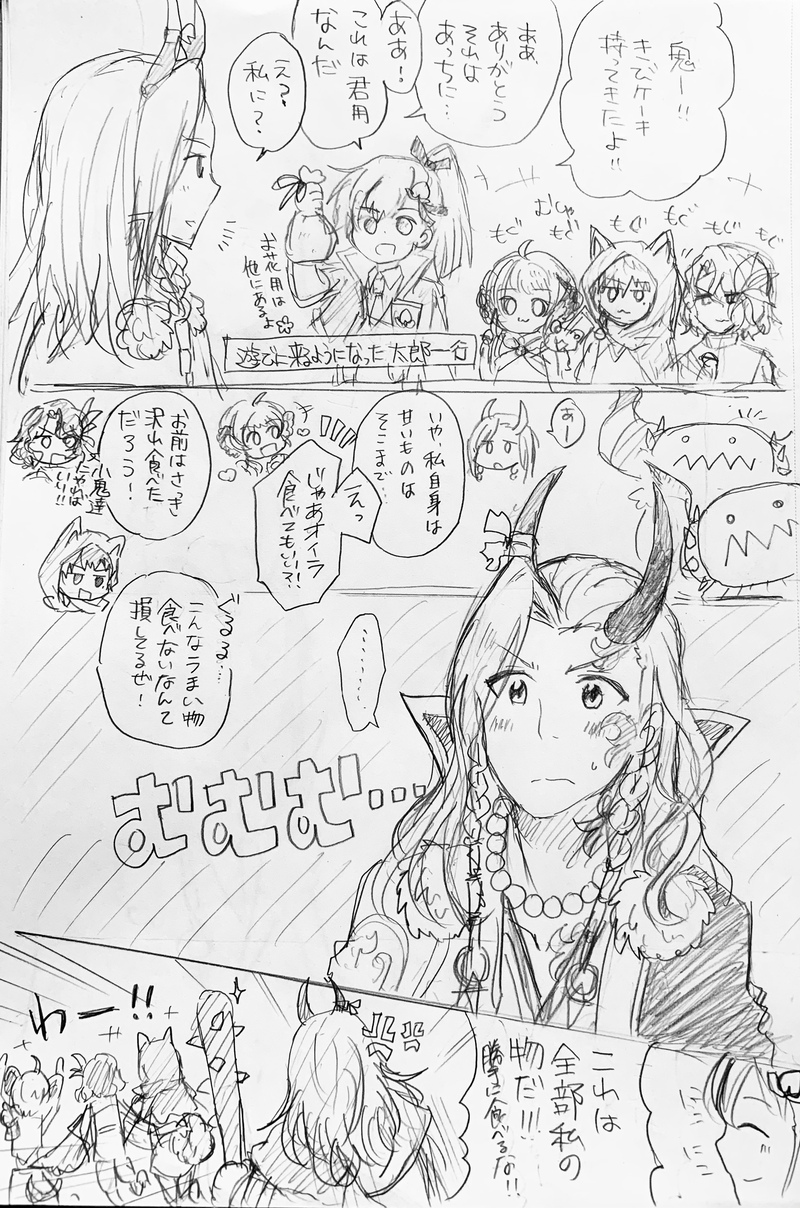 鬼ー!!
きびケーキ
持ってきたよ!!
ああ、
ありがとう
それは
あっちに…
ああ!
これは君用
なんだ
え?
私に?
お花用は
他にあるよ
もぐ
むしゃ
もぐ
もぐ
もぐ
もぐ
遊びに来るようになった太郎一行
あー
いや、私自身は
甘いものは
そこまで…
えっ
じゃあオイラ
食べてもいい?!
お前はさっき
沢山食べた
だろう!
小鬼達
にやればいい!!
ぐるる…
こんなうまい物
食べないなんて
損してるぜ!
………
むむむ…
にこ
にこ
これは
全部私の
物だ!!!
勝手に食べるな!!
わー!!